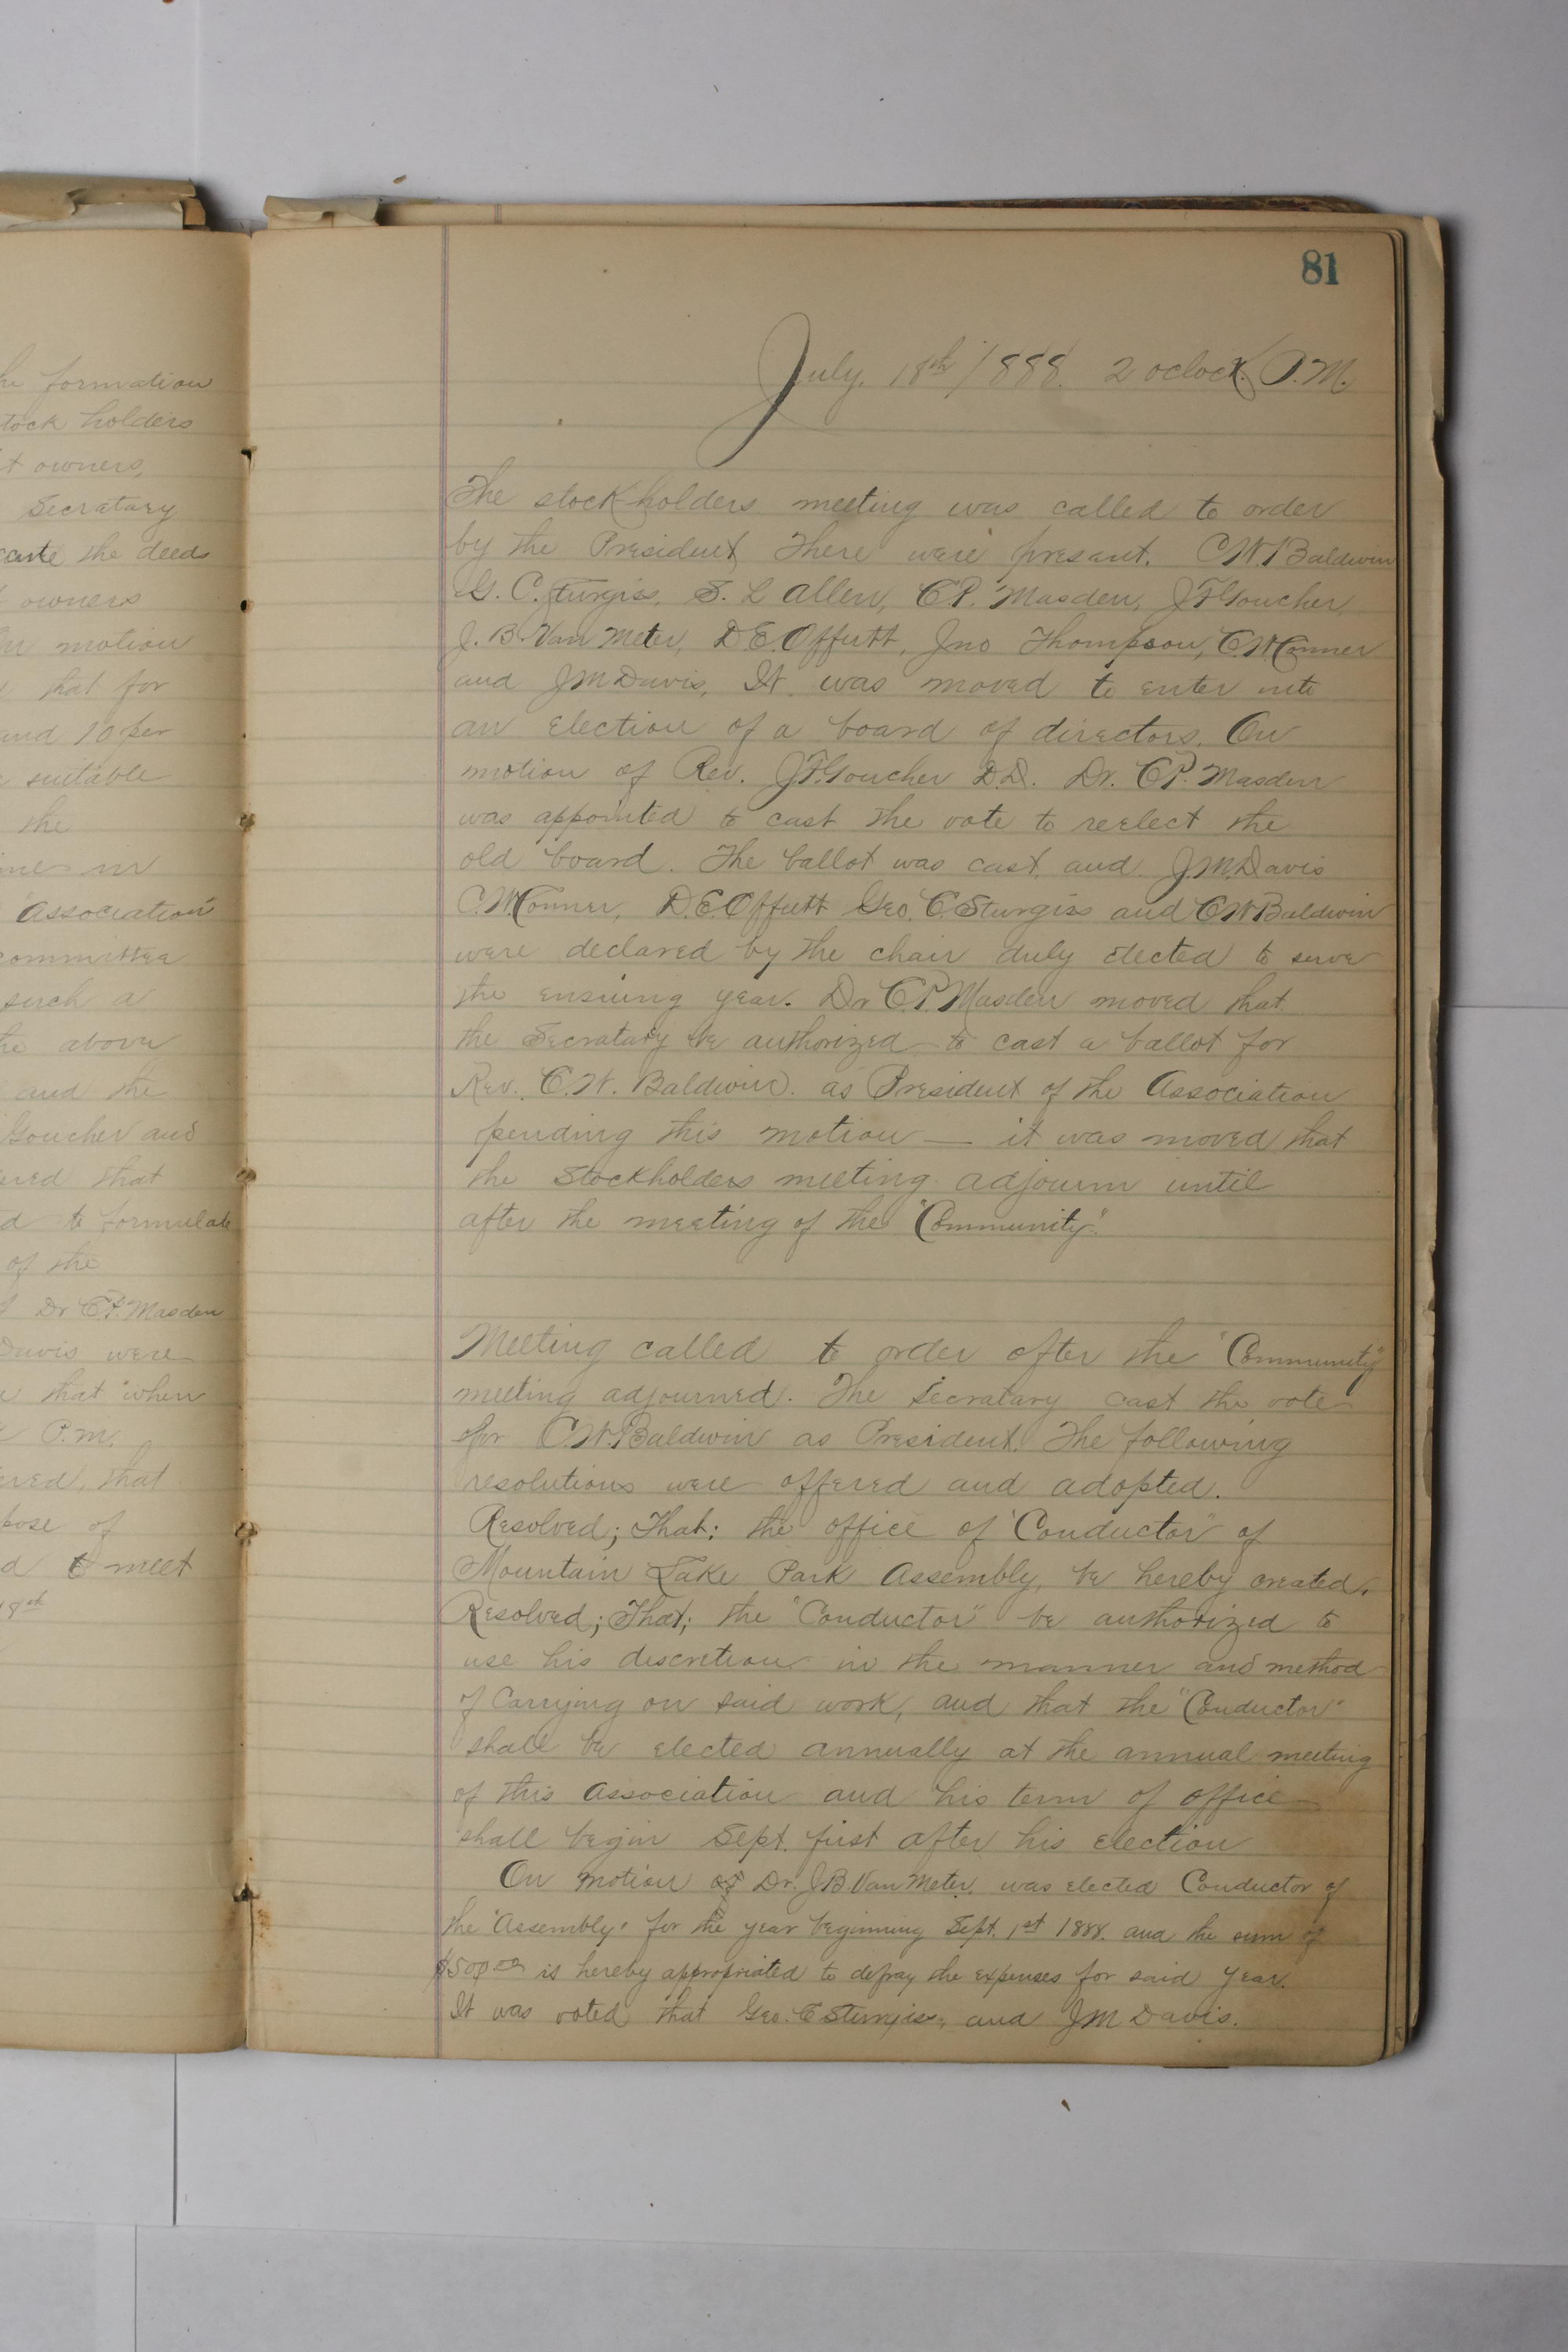 he formation
tock holders
t owners,
Secratary
cute the deeds
owners
motion
that for
and 10 per
suitable
the
in
Association
committee
such a
he above
and the
Goucher and
ered that
d to formulate
of the
Dr C.P. Masden
Davis were
that when
P.M.
ered, that
pose of
d to meet
81
July. 18th 1888. 2 oclock. P.M.
The stockholders meeting was called to order
by the President, There were presant. C.W. Baldwin
G. C. Sturgiss, S. L Allen, C.P. Masden, J.F. Goucher,
J. B. Van Meter, D.E. Offutt, Jno Thompson, C.W. Conner
and J M Davis, It was moved to enter into
an election of a board of directors. On
motion of Rev. J.F. Goucher D.D. Dr. C.P. Masden
was appointed to cast the vote to reelect the
old board. The ballot was cast and J.M. Davis
C.W. Conner, D.E. Offutt Geo. C. Sturgiss and C W Baldwin
were declared by the chair duly elected to serve
the ensuing year. Dr C.P. Masden moved that
the Secratary be authorized to cast a ballot for
Rev. C.W. Baldwin. as President of the Association
pending this motion — it was moved that
the Stockholders meeting adjourn until
after the meeting of the "Community".
Meeting called to order after the "Community"
meeting adjourned. The Secratary cast the vote
for C.W. Baldwin as President. The following
resolutions were offered and adopted.
Resolved; That; the office of "Conductor" of
Mountain Lake Park Assembly, be hereby created.
Resolved; That; the "Conductor" be authorized to
use his discretion in the manner and method
of Carrying on said work, and that the "Conductor"
shall be elected annually at the annual meeting
of this Association and his term of office
shall begin Sept. first after his election
On motion of Dr. J B Van Meter, was elected Conductor of
the "Assembly" for the year beginning Sept. 1st 1888. and the sum of
$500.00 is hereby appropriated to defray the expenses for said year.
It was voted that Geo. C Sturgiss, and J M Davis.